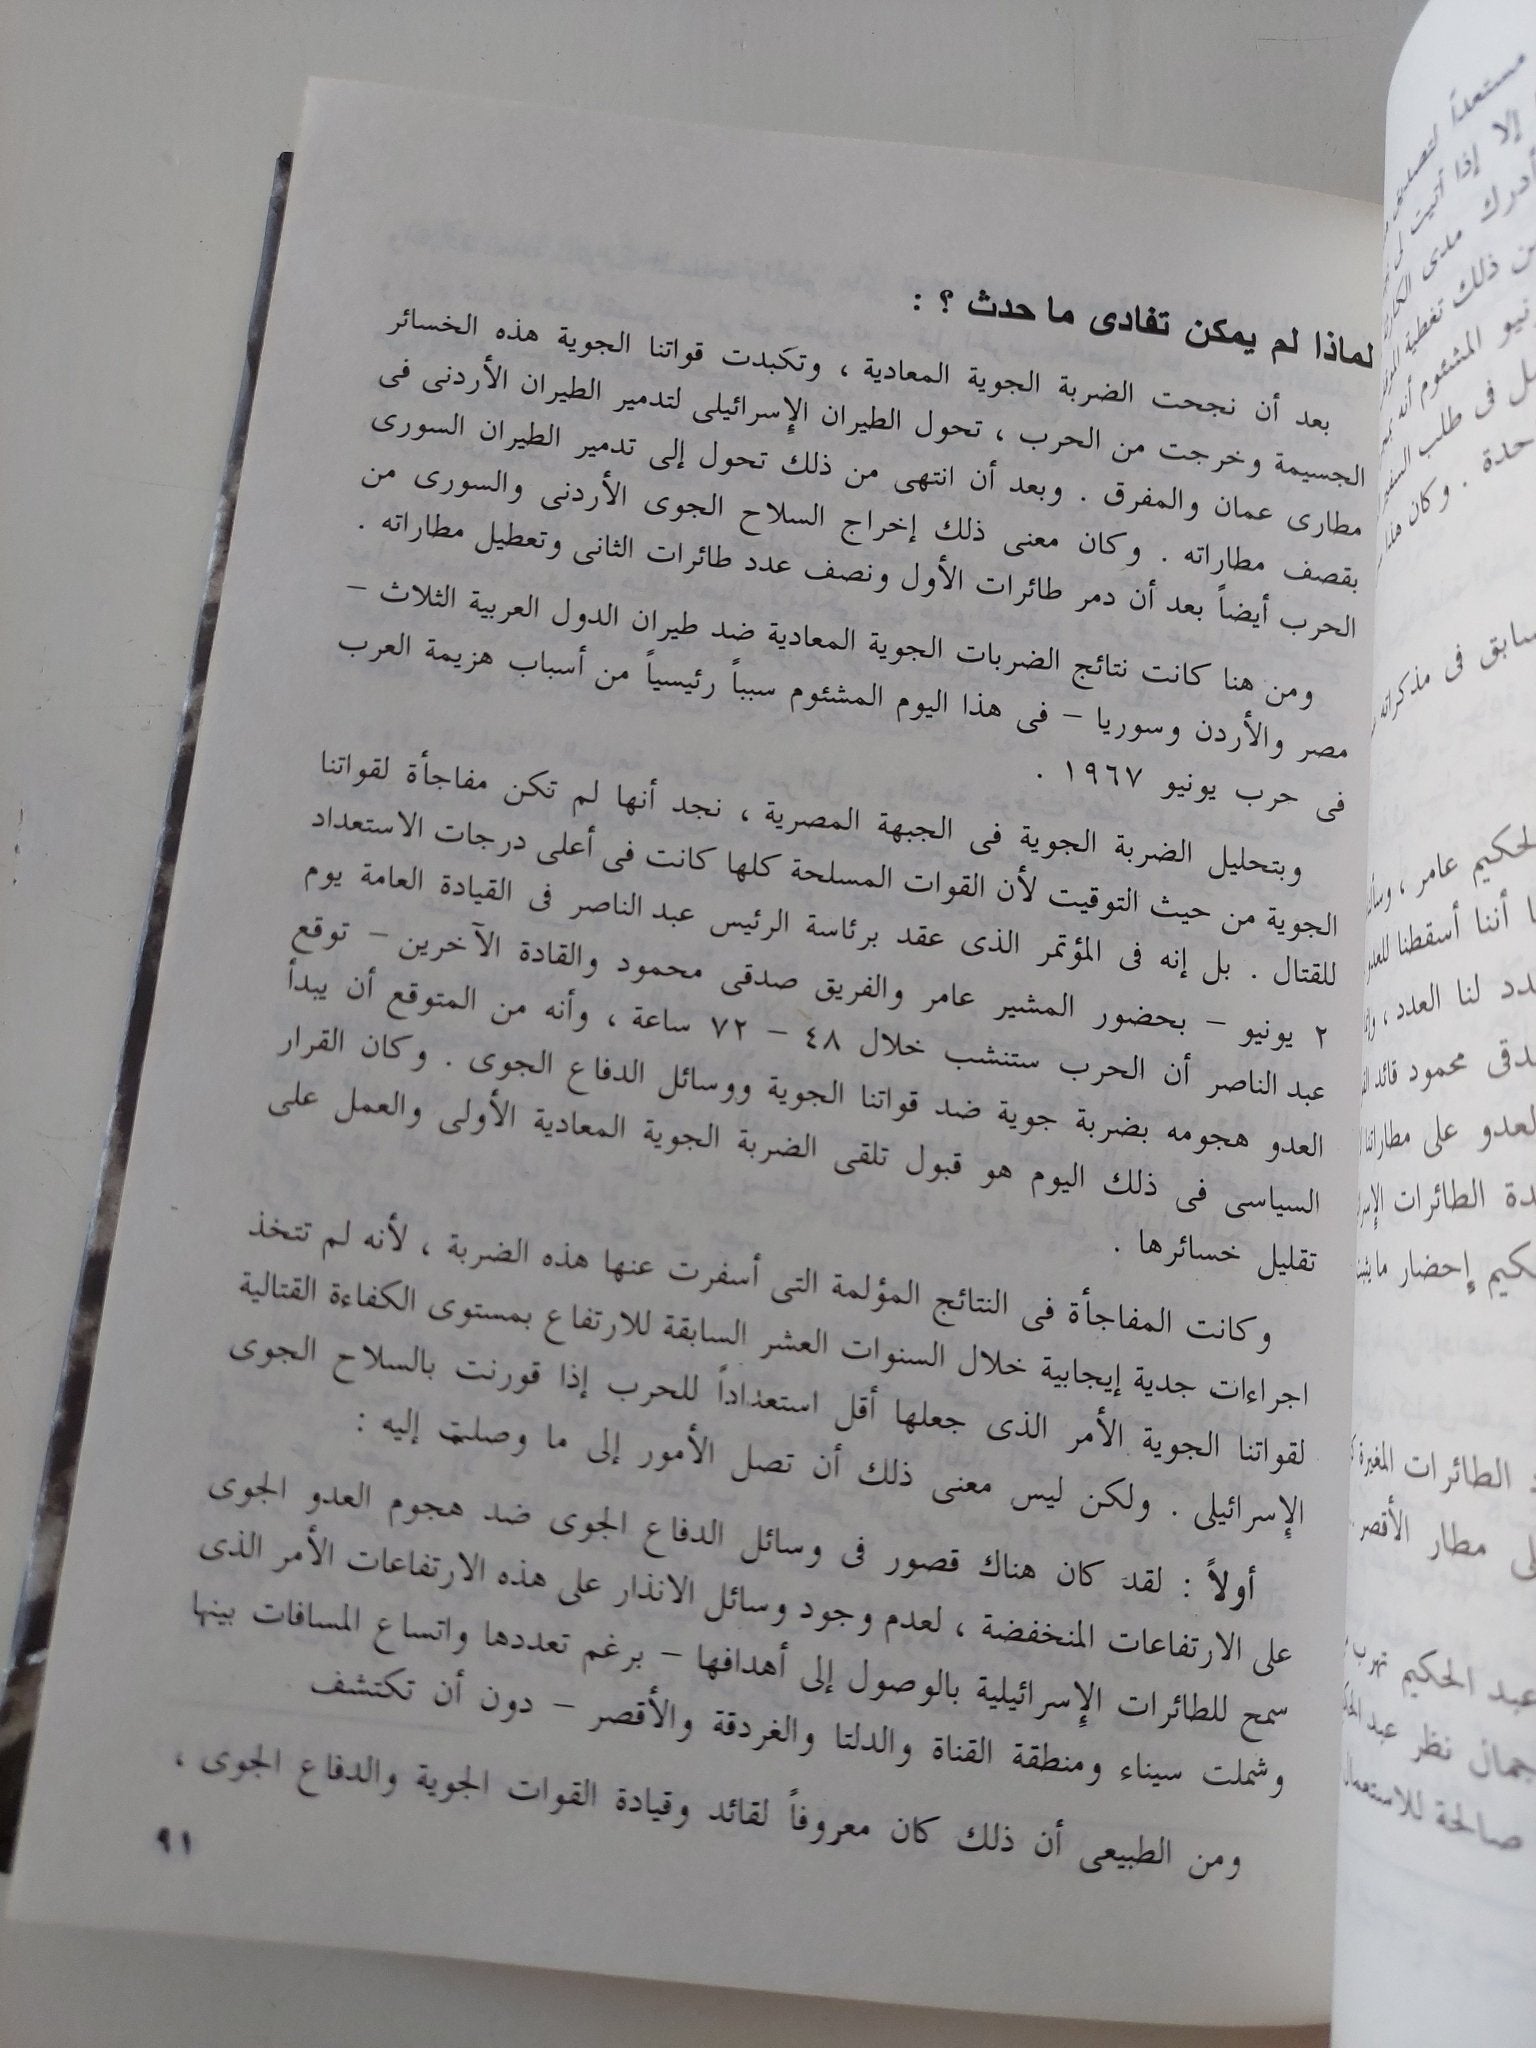 لماذا لم يمكن تفادى ما حدث ؟ :
بعد أن نجحت الضربة الجوية المعادية ، وتكبدت قواتنا الجوية هذه الخسائر
الجسيمة وخرجت من الحرب ، تحول الطيران الإسرائيلى لتدمير الطيران الأردنى فى
مطارى عمان والمفرق . وبعد أن انتهى من ذلك تحول إلى تدمير الطيران السورى
بقصف مطاراته . وكان معنى ذلك إخراج السلاح الجوى الأردنى والسورى من
الحرب أيضاً بعد أن دمر طائرات الأول ونصف عدد طائرات الثانى وتعطيل مطاراته .
ومن هنا كانت نتائج الضربات الجوية المعادية ضد طيران الدول العربية الثلاث –
مصر والأردن وسوريا – فى هذا اليوم المشئوم سبباً رئيسياً من أسباب هزيمة العرب
فى حرب يونيو ١٩٦٧ .
وبتحليل الضربة الجوية فى الجبهة المصرية ، نجد أنها لم تكن مفاجأة لقواتنا
الجوية من حيث التوقيت لأن القوات المسلحة كلها كانت فى أعلى درجات الاستعداد
للقتال . بل إنه فى المؤتمر الذى عقد برئاسة الرئيس عبد الناصر فى القيادة العامة يوم
٢ يونيو – بحضور المشير عامر والفريق صدقى محمود والقادة الآخرين – توقع
عبد الناصر أن الحرب ستنشب خلال ٤٨ – ٧٢ ساعة ، وأنه من المتوقع أن يبدأ
العدو هجومه بضربة جوية ضد قواتنا الجوية ووسائل الدفاع الجوى . وكان القرار
السياسى فى ذلك اليوم هو قبول تلقى الضربة الجوية المعادية الأولى والعمل على
تقليل خسائرها .
وكانت المفاجأة فى النتائج المؤلمة التى أسفرت عنها هذه الضربة ، لأنه لم تتخذ
اجراءات جدية إيجابية خلال السنوات العشر السابقة للارتفاع بمستوى الكفاءة القتالية
لقواتنا الجوية الأمر الذى جعلها أقل استعداداً للحرب إذا قورنت بالسلاح الجوى
الإسرائيلى . ولكن ليس معنى ذلك أن تصل الأمور إلى ما وصلت إليه :
أولاً : لقد كان هناك قصور فى وسائل الدفاع الجوى ضد هجوم العدو الجوى
على الارتفاعات المنخفضة ، لعدم وجود وسائل الانذار على هذه الارتفاعات الأمر الذى
سمح للطائرات الإسرائيلية بالوصول إلى أهدافها – برغم تعددها واتساع المسافات بينها
وشملت سيناء ومنطقة القناة والدلتا والغردقة والأقصر – دون أن تكتشف
ومن الطبيعى أن ذلك كان معروفاً لقائد وقيادة القوات الجوية والدفاع الجوى ،
٩١
إلا إذا
أدرك مدى
ن ذلك تغطية
نيو المشئوم أنه
ل فى طلب
حدة . وكان هذا
سابق فى مذكراته
لحكيم عامر ،
ا أننا أسقطنا للعدو
دد لنا العدد ،
دقى محمود قائد
لعدو على مطاراتنا
دة الطائرات
كيم إحضار ما
الطائرات المغيرة
لى مطار الأقصر
عبد الحكيم تهرب
نظر
صالحة للاستعمال